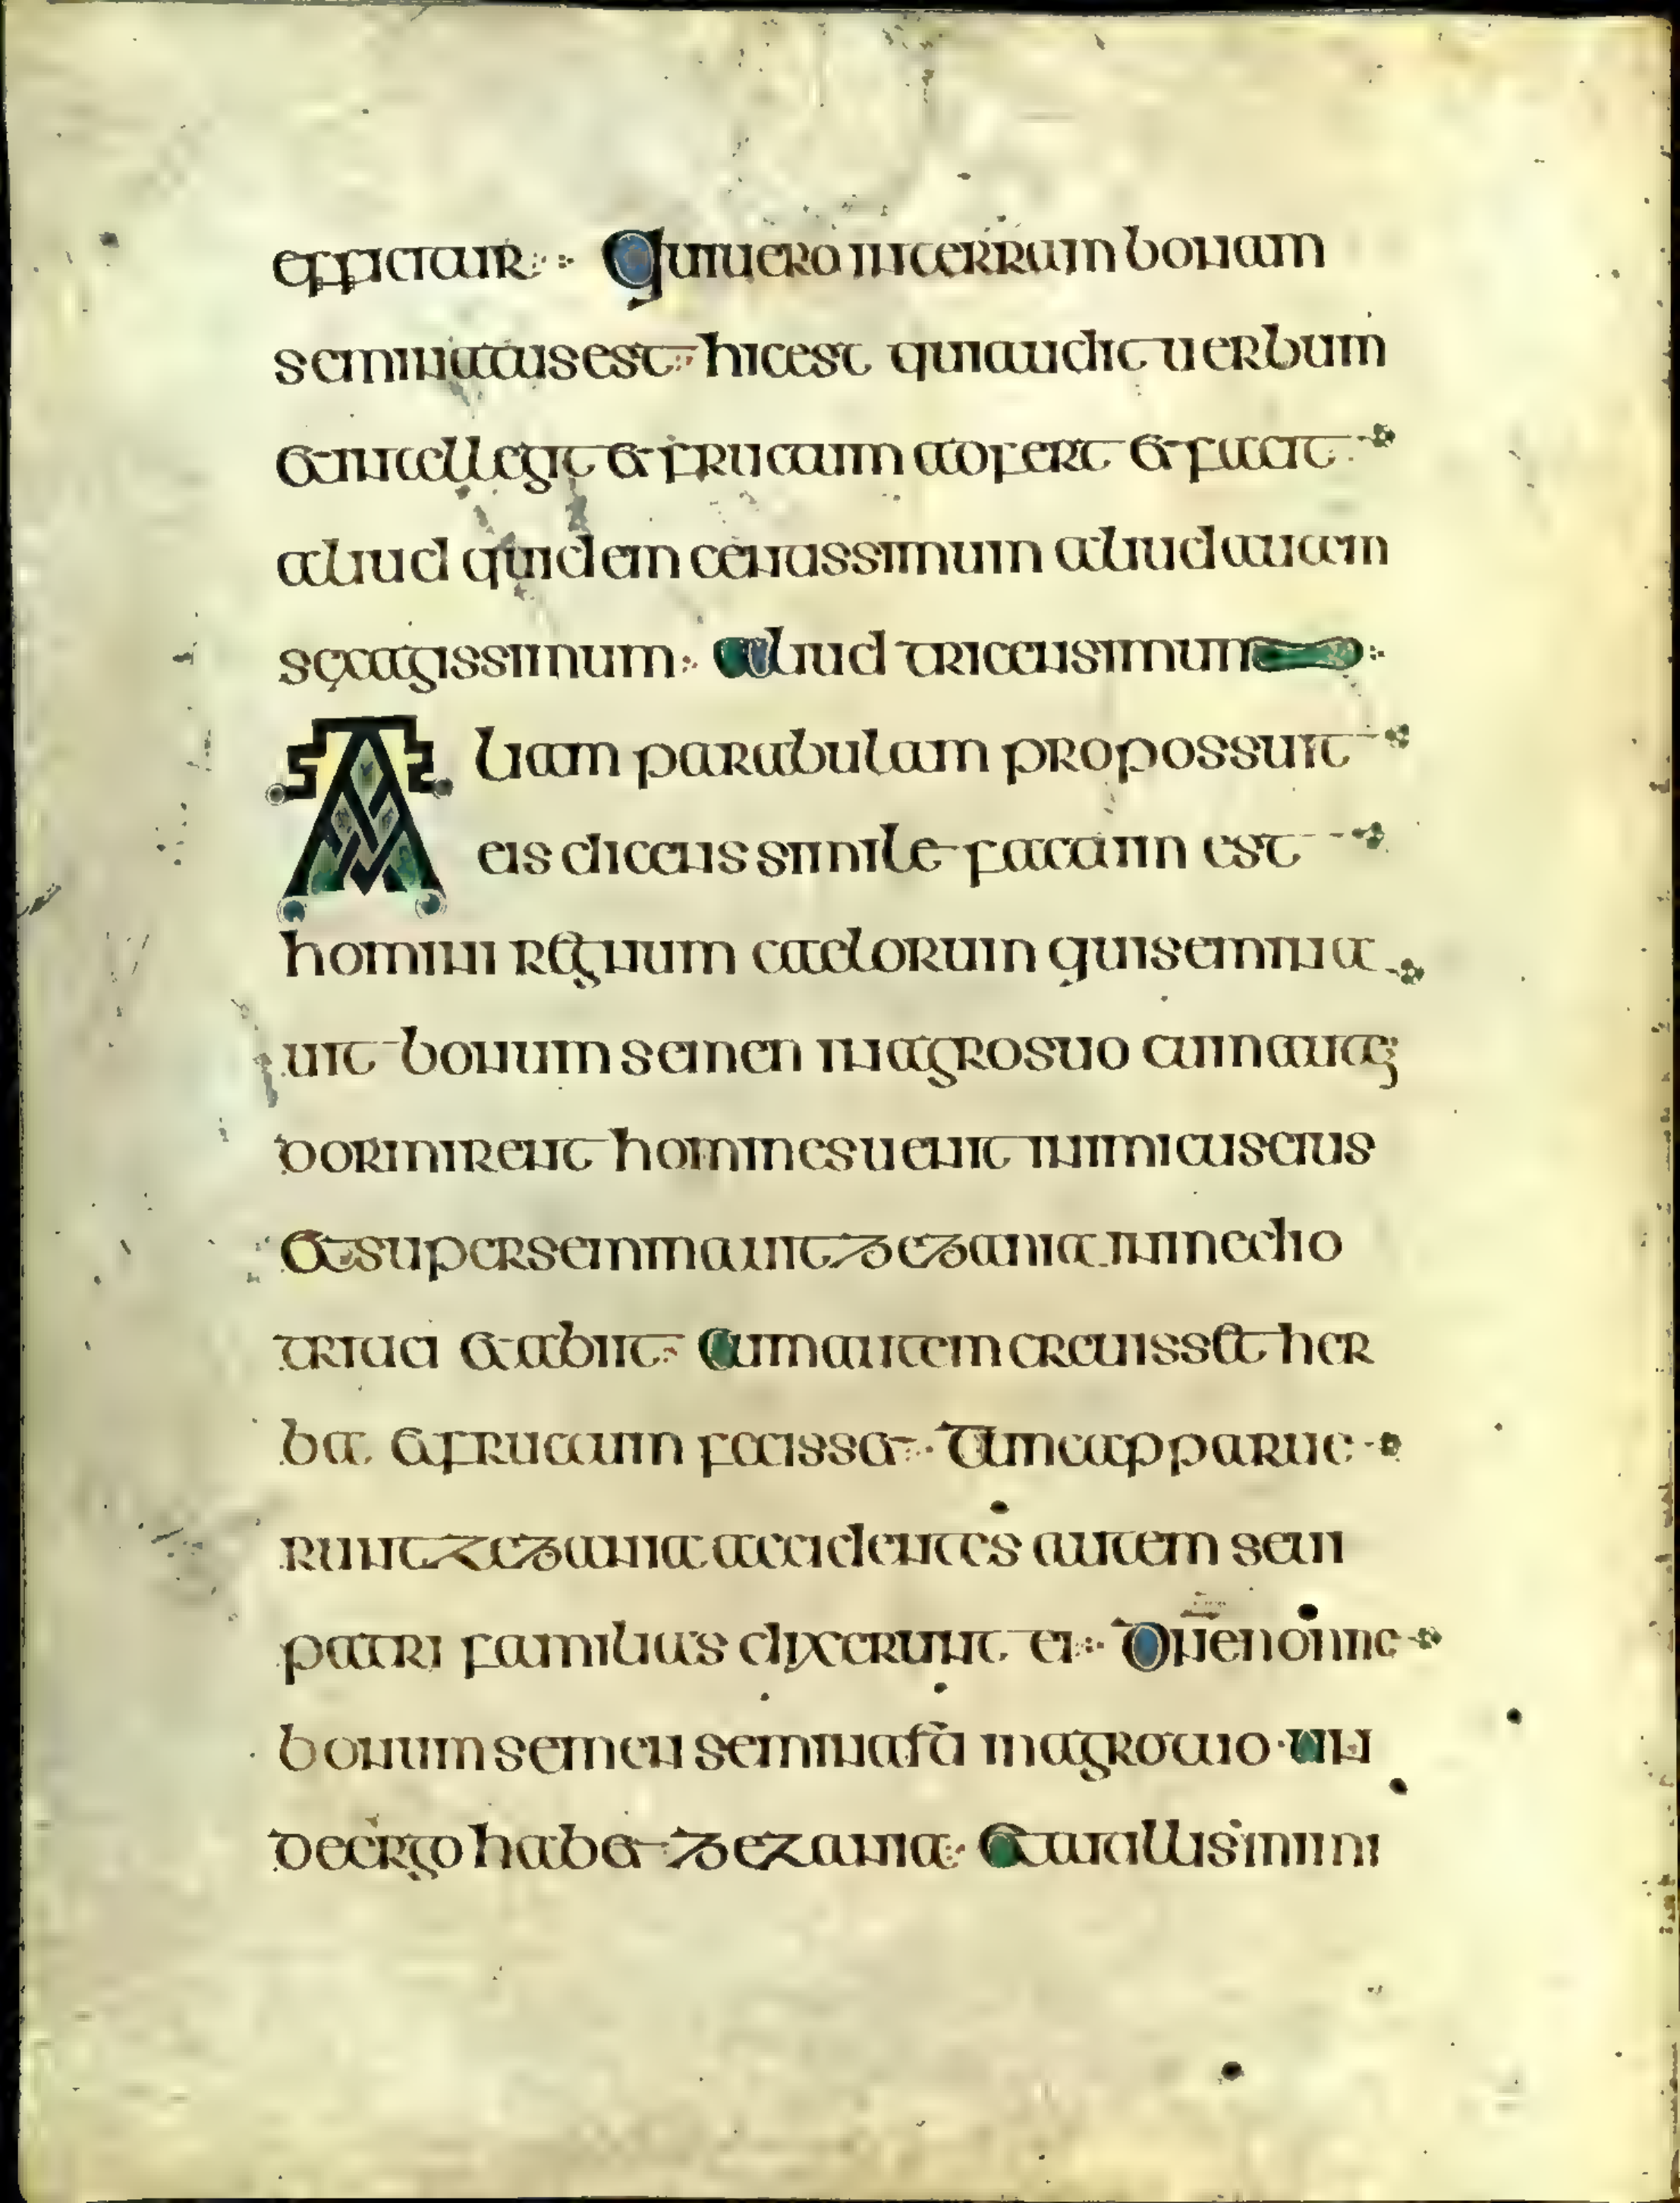 efficitur Qui uero in terram bonam
seminatus est hic est qui audit uerbum
et intellegit et fructum adfert et facit
aliud quidem centissimum aliud autem
sexagissimum Aliud tricensimum
Aliam parabulam propossuit
eis dicens simile factum est
homini regnum caelorum qui semina
uit bonum semen in agro suo cum autem
dormirent homines uenit inimicus eius
et superseminauit zezania in medio
tritici et abiit Cum autem creuisset her
ba et fructum fecisset Tum apparue
runt zezania accidentes autem serui
patri familias dixerunt ei Dne nonne
bonum semen seminasti in agro tuo un
de ergo habet zezania Et ait illis inimi